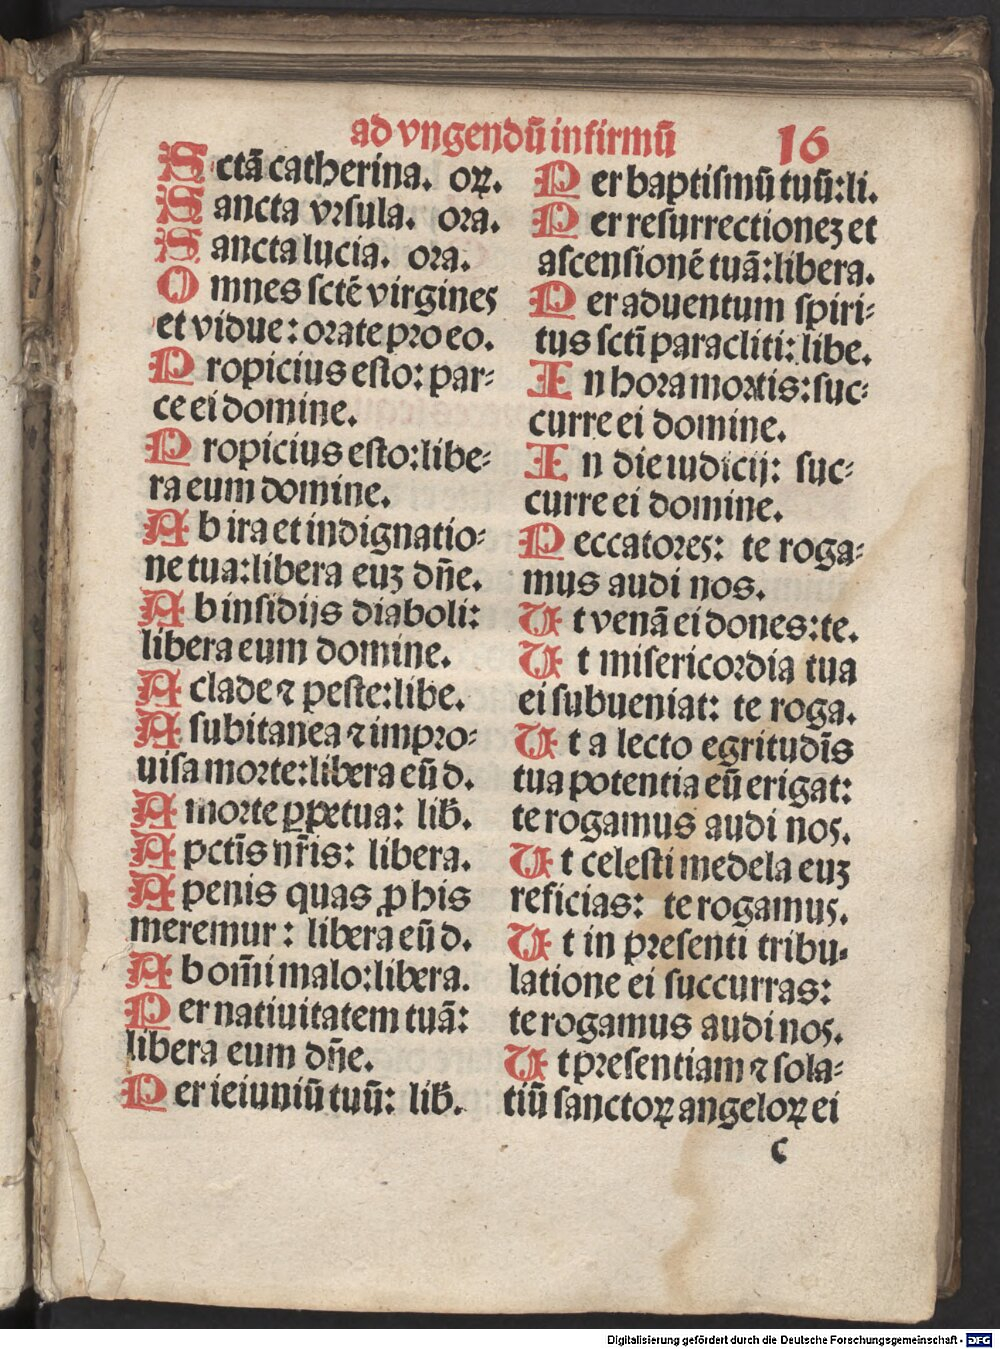 ad vngendũ infirmũ 16
Sctã catherina. oꝝ.
Sancta vrsula. ora.
Sancta lucia. ora.
Omnes sctẽ virgines
et vidue: orate pro eo.
Propicius esto: par-
ce ei domine.
Propicius esto: libe-
ra eum domine.
Ab ira et indignatio-
ne tua: libera euʒ dñe.
Ab insidijs diaboli:
libera eum domine.
A clade ⁊ peste: libe.
A subitanea ⁊ impro-
uisa morte: libera eũ d.
A morte ꝑpetua: lib̃.
A pctĩs nr̃is: libera.
A penis quas ꝓ his
meremur: libera eũ d.
Ab om̃i malo: libera.
Per natiuitatem tuã:
libera eum dñe.
Per ieiuniũ tuũ: lib̃.
Per baptismũ tuũ: li.
Per resurrectioneʒ et
ascensionẽ tuã: libera.
Per aduentum spiri-
tus sctĩ paracliti: libe.
In hora mortis: suc-
curre ei domine.
In die iudicij: suc-
curre ei domine.
Peccatores: te roga-
mus audi nos.
Ut venã ei dones: te.
Ut misericordia tua
ei subueniat: te roga.
Ut a lecto egritudĩs
tua potentia eũ erigat:
te rogamus audi nos.
Ut celesti medela euʒ
reficias: te rogamus.
Ut in presenti tribu-
latione ei succurras:
te rogamus audi nos.
Ut presentiam ⁊ sola-
tiũ sanctoꝝ angeloꝝ ei
c
Digitalisierung gefördert durch die Deutsche Forschungsgemeinschaft - DFG